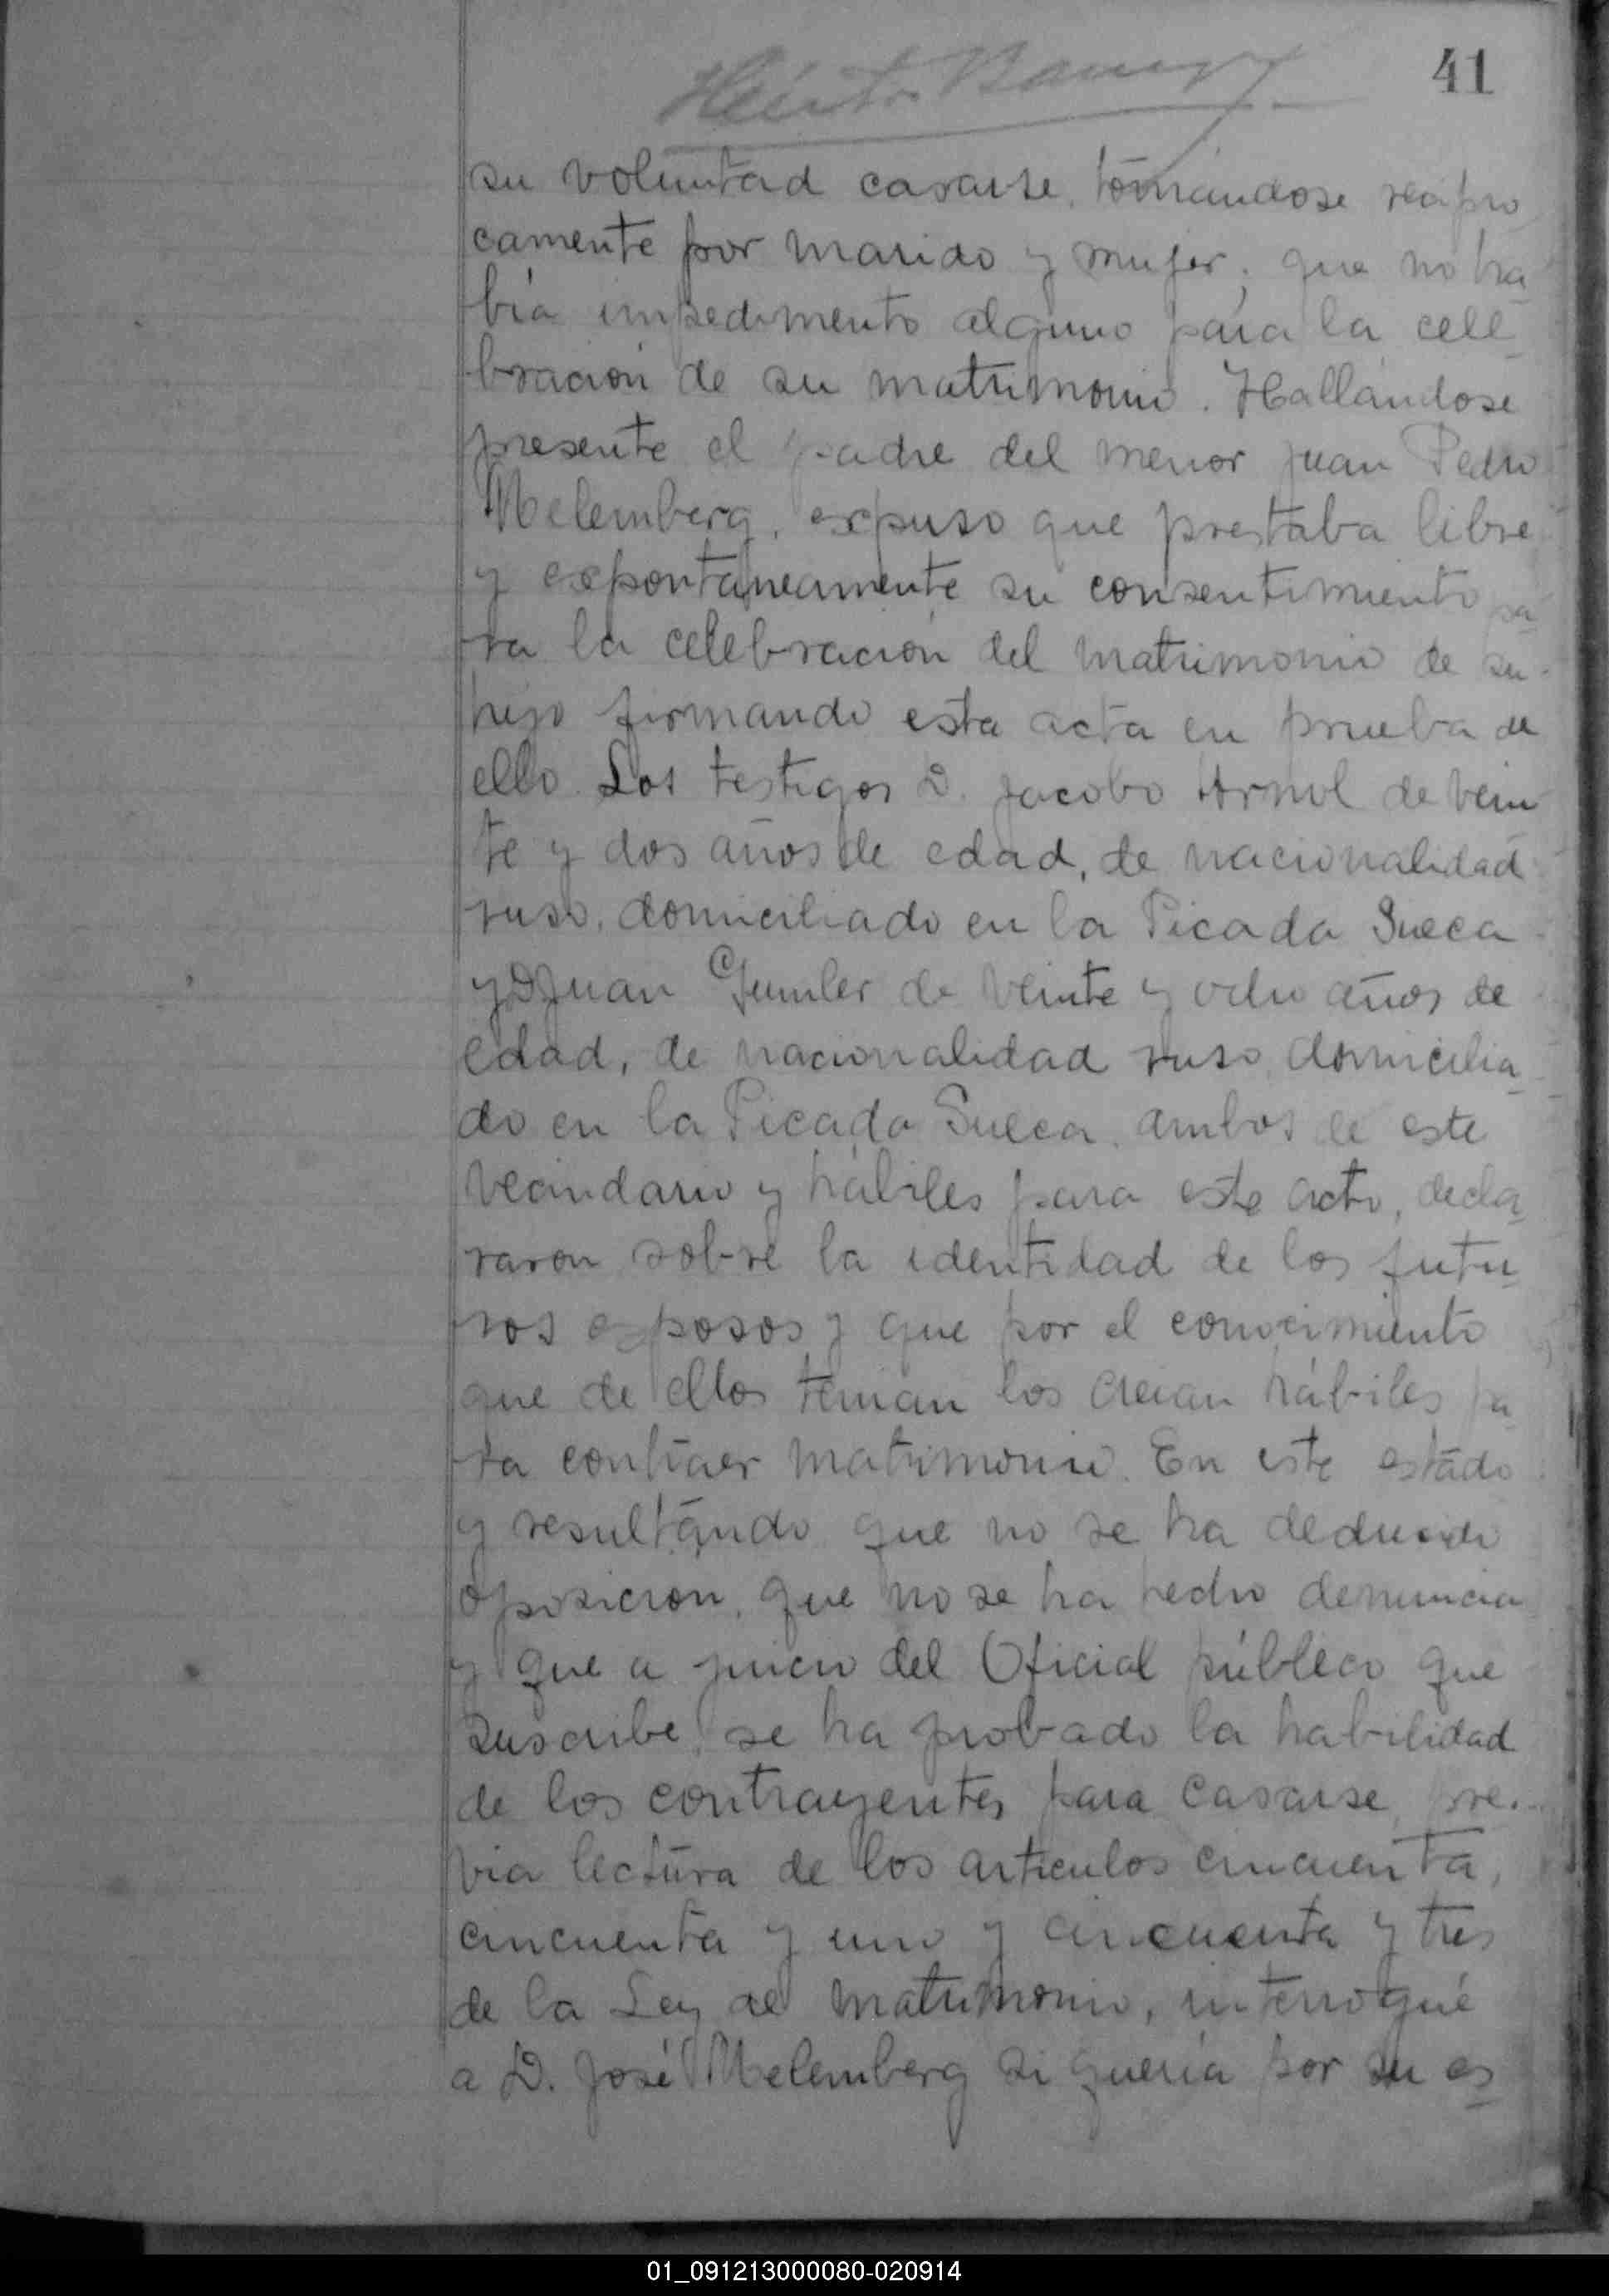 41
su voluntad casarse, tomandose recipro
camente por marido y mujer; que no ha
bía impedimento alguno para la cele
bración de su matrimonio. Hallándose
presente el padre del menor Juan Pedro
Melemberg, expuso que prestaba libre
y expontaneamente su consentimiento pa
ra la celebración del matrimonio de su
hijo firmando esta acta en prueba de
ello. Los testigos D. Jacobo Arnol de vein
te y dos años de edad, de nacionalidad
ruso, domiciliado en la Picada Sueca
y D Juan Gumler de veinte y ocho años de
edad, de nacionalidad ruso, domicilia
do en la Picada Sueca, ambos de este
vecindario y hábiles para este acto, decla
raron sobre la identidad de los futu
ros esposos y que por el conocimiento
que de ellos tenian los creian hábiles pa
ra contraer matrimonio. En este estado
y resultando que no se ha deducido
oposicion, que no se ha hecho denuncia
y que a juicio del Oficial público que
suscribe, se ha probado la habilidad
de los contrayentes para casarse, pre.
via lectura de los articulos cincuenta,
cincuenta y uno y cincuenta y tres
de la Ley de matrimonio, interrogué
a D. José Melemberg si quería por su es
01_091213000080-020914